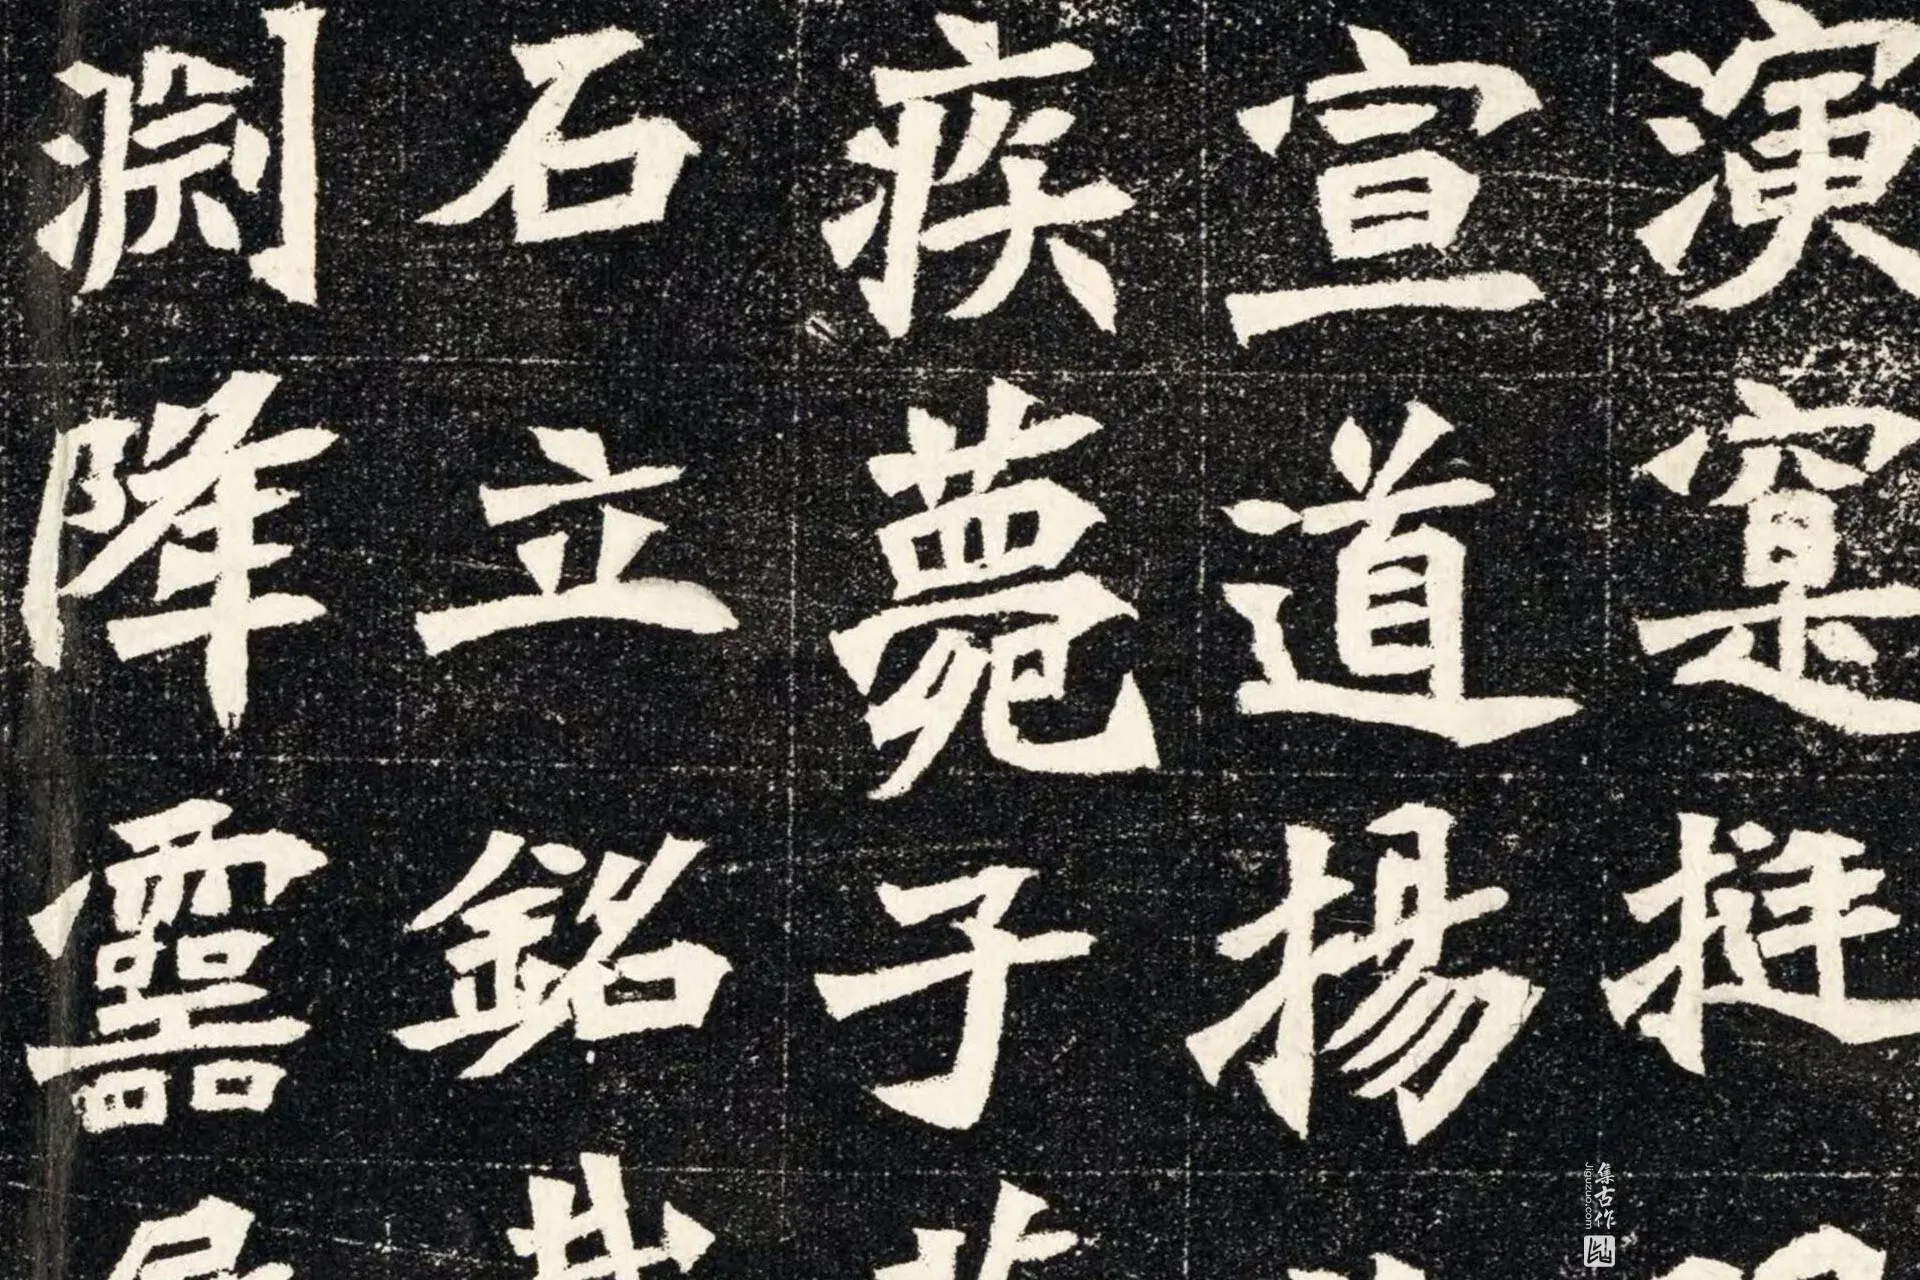 演寔挺
宣道揚
疾薨子
石立銘其
淵降靈
集古作
Jiguzuo.com